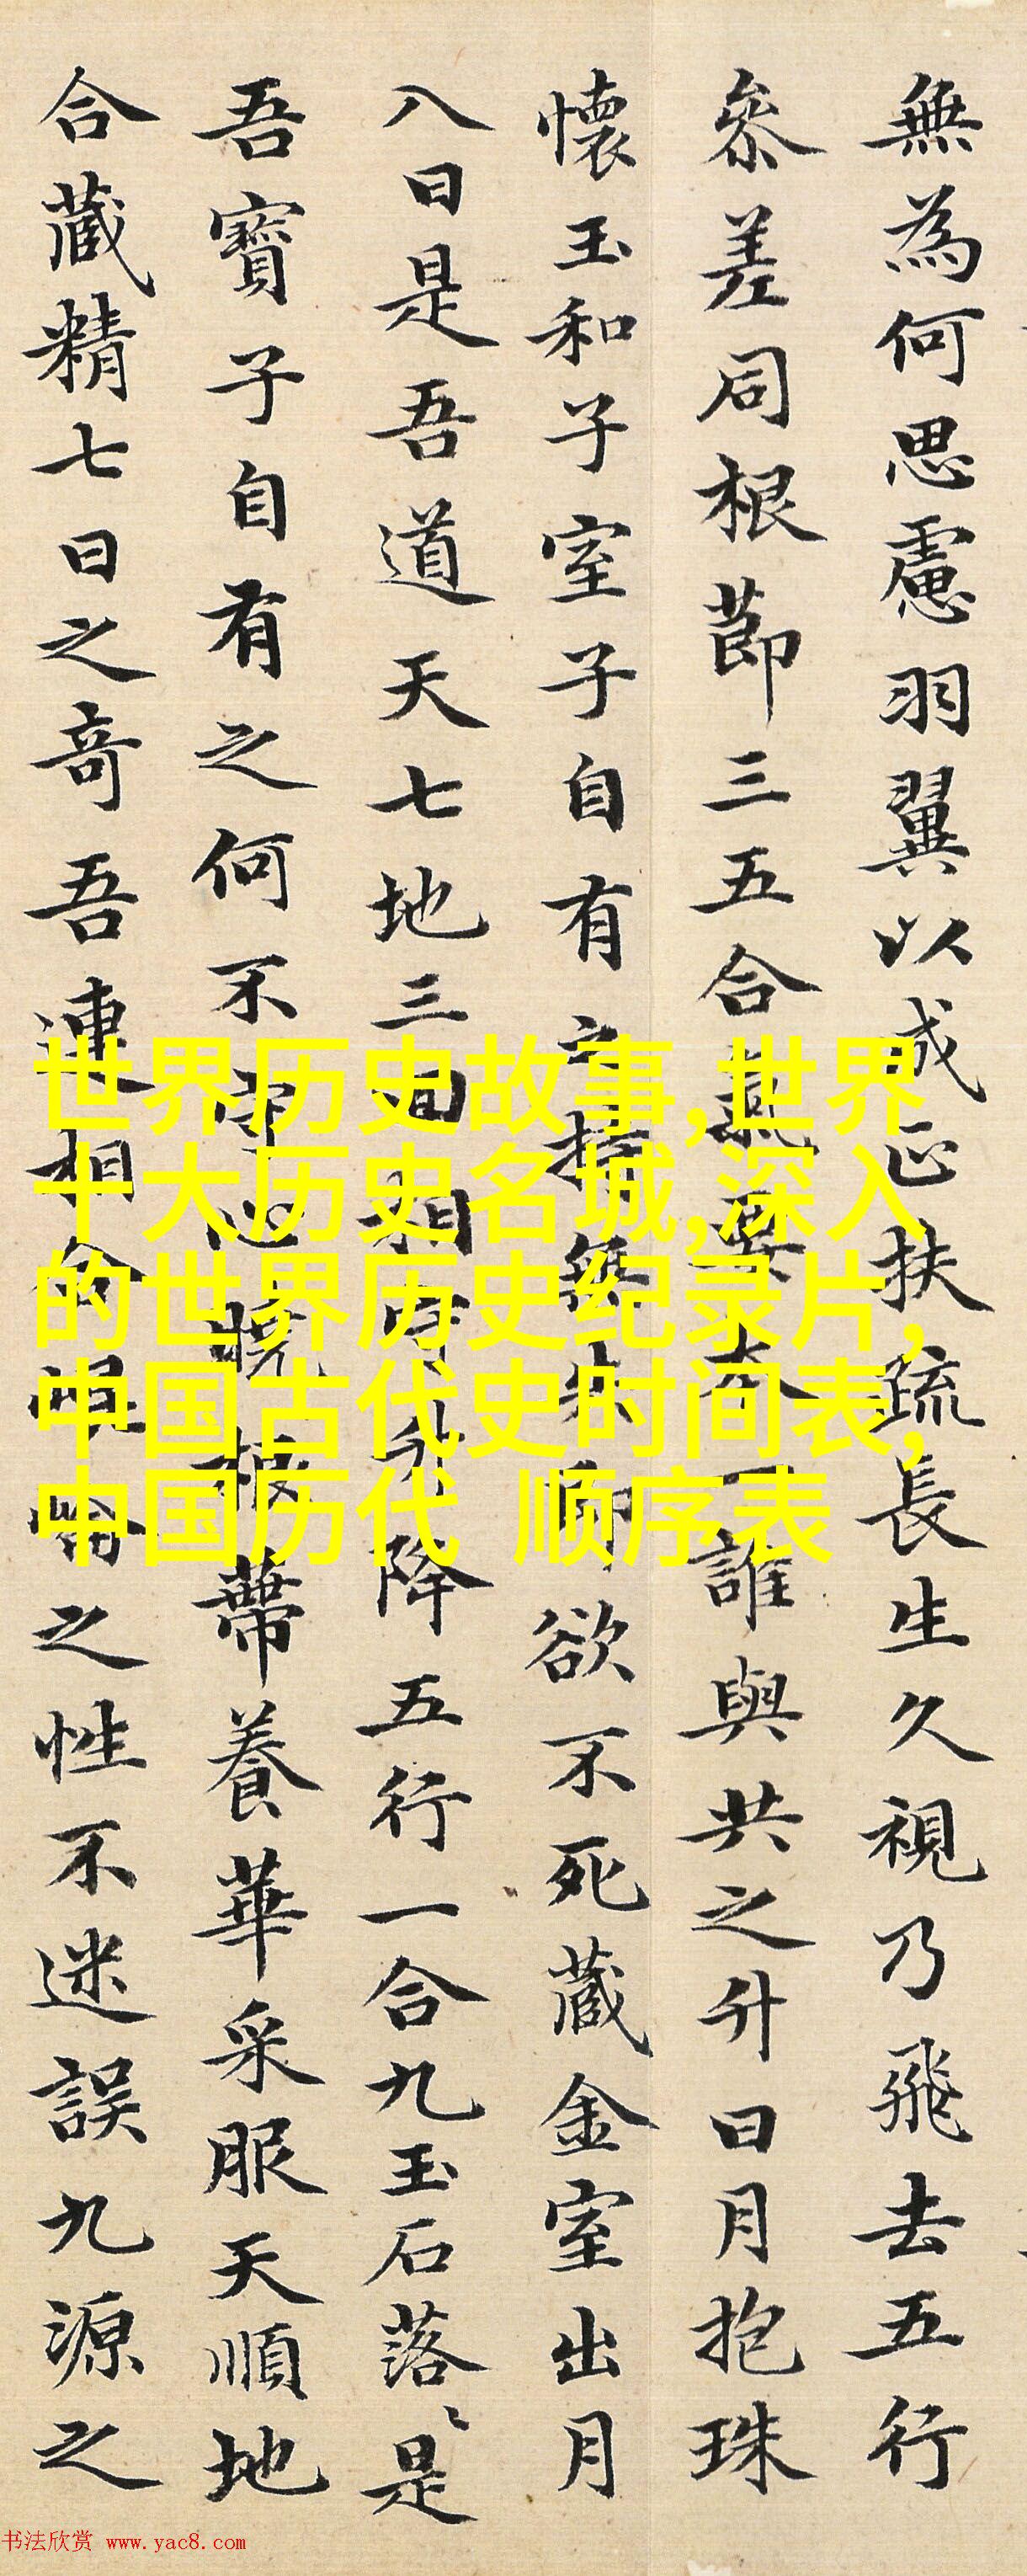 無為何思慮羽翼以成正扶疏長生久視乃飛去五行
參差同根節三五合氣要本一誰與共之升日月抱珠
懷玉和子室子自有之持無失即欲不死藏金室出月
入日是吾道天七地三回相守升降五行一合九玉石落〻是
吾寶子自有之何不守心曉根蔕養華采服天順地
合藏精七日之奇吾連相合崐崘之性不迷誤九源之
世界历史故事,世界
十大历史名城,深入
的世界历史纪录片,
中国古代史时间表,
中国历代 顺序表
书法欣赏 www.yac8.com